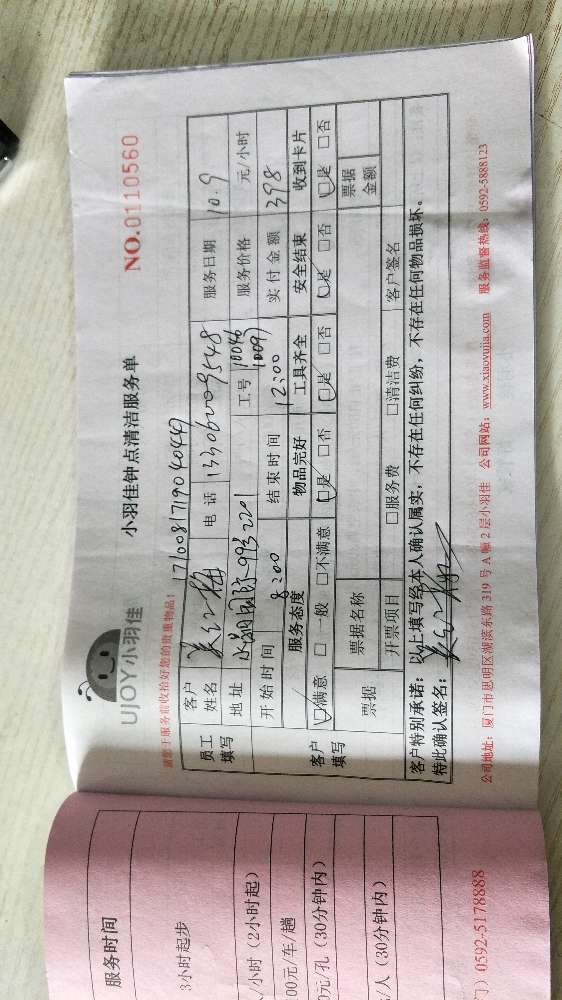 UJOY小羽佳
小羽佳钟点清洁服务单
NO.0110560
请您于服务前收拾好您的贵重物品!
1710081719040449
员工填写
客户姓名
电话 13306009548
服务日期 10.9
地址
工号 10046 10091
服务价格 元/小时
开始时间 8:00
结束时间 12:00
实付金额 398
客户填写
服务态度 物品完好 工具齐全 安全结束 收到卡片
☑满意 □一般 □不满意 ☑是 □否 ☑是 □否 ☑是 □否 ☑是 □否
票据 票据名称 票据金额
开票项目 □服务费 □清洁费 客户签名
客户特别承诺:以上填写经本人确认属实,不存在任何纠纷,不存在任何物品损坏。
特此确认签名:
公司地址:厦门市思明区湖滨东路 319 号 A 幢 2 层小羽佳 公司网站:www.xiaoyujia.com 服务监督热线:0592-5888123
服务时间
3小时起步
/小时(2小时起)
00元/车/趟
0元/孔(30分钟内)
/人(30分钟内)
门)0592-5178888